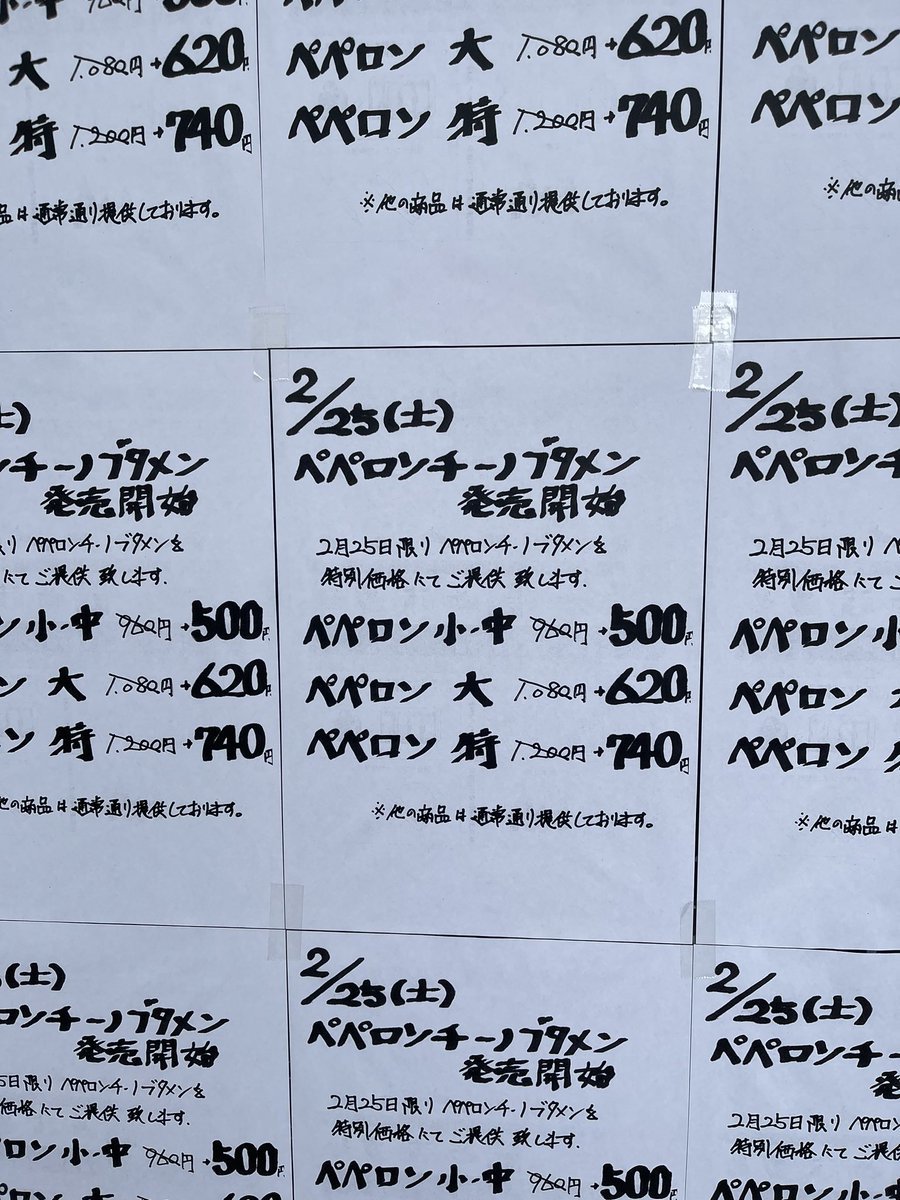 大 1.080円→620円
特 1.200円→740円
品は通常通り提供しております。
ペペロン 大 1.080円→620円
ペペロン 特 1.200円→740円
※他の商品は通常通り提供しております。
ペペロン
ペペロン
※他の商品
土)
ンチーノブタメン
発売開始
限り ペペロンチーノブタメンを
にてご提供致します.
ン小・中 960円→500円
ン 大 1.080円→620円
ン 特 1.200円→740円
他の商品は通常通り提供しております。
2/25(土)
ペペロンチーノブタメン
発売開始
2月25日限り ペペロンチーノブタメンを
特別価格にてご提供致します.
ペペロン小・中 960円→500円
ペペロン 大 1.080円→620円
ペペロン 特 1.200円→740円
※他の商品は通常通り提供しております。
2/25(土)
ペペロンチ
発
2月25日限り
特別価格にてご
ペペロン小
ペペロン
ペペロン
※他の商品は
(土)
ロンチーノブタメン
発売開始
5日限り ペペロンチーノブタメンを
価格にてご提供致します.
ペロン小・中 960円→500円
2/25(土)
ペペロンチーノブタメン
発売開始
2月25日限り ペペロンチーノブタメンを
特別価格にてご提供致します.
ペペロン小・中 960円→500円
2/25(土)
ペペロンチー
発
2月25日限り ペペロン
特別価格にてご提
ペペロン小・中